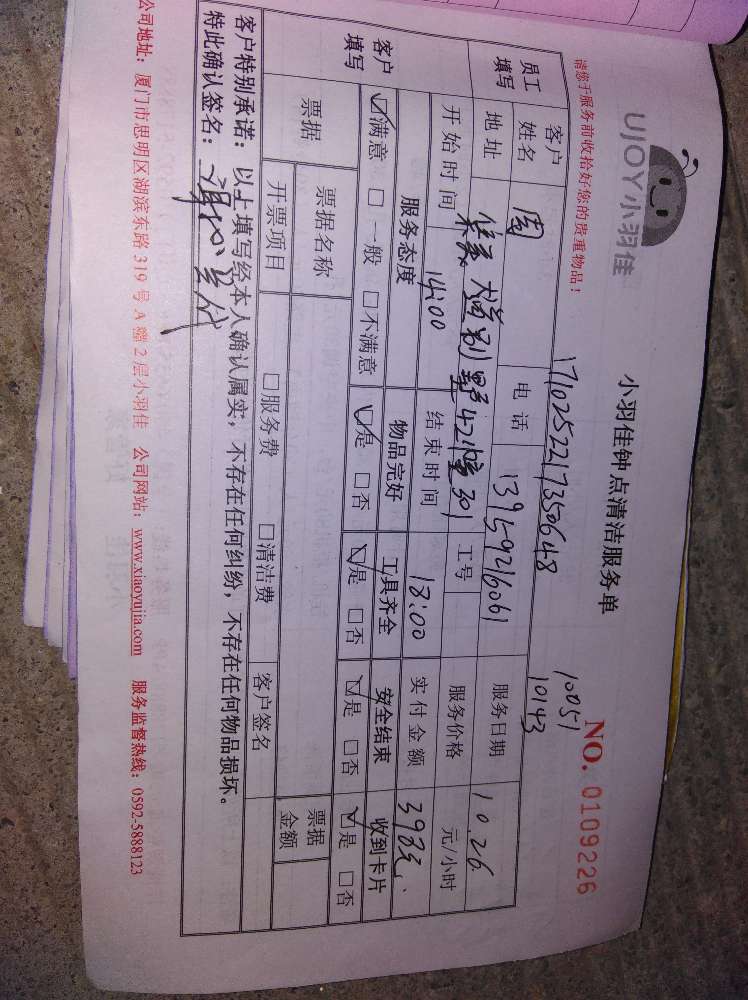 UJOY小羽佳
小羽佳钟点清洁服务单
NO. 0109226
请您于服务前收拾好您的贵重物品！
1710252217350648
10051
10143
员工填写
客户姓名 周 电话 13959216061 服务日期 10.26
地址 集美 别墅42幢301 工号 服务价格 元/小时
开始时间 14:00 结束时间 18:00 实付金额 398元
客户填写
服务态度 物品完好 工具齐全 安全结束 收到卡片
☑满意 □一般 □不满意 ☑是 □否 ☑是 □否 ☑是 □否 ☑是 □否
票据 票据名称 □服务费 □清洁费 票据金额
开票项目 客户签名
客户特别承诺：以上填写经本人确认属实，不存在任何纠纷，不存在任何物品损坏。
特此确认签名：
公司地址：厦门市思明区湖滨东路319号A幢2层小羽佳 公司网站：www.xiaoyujia.com 服务监督热线：0592-5888123